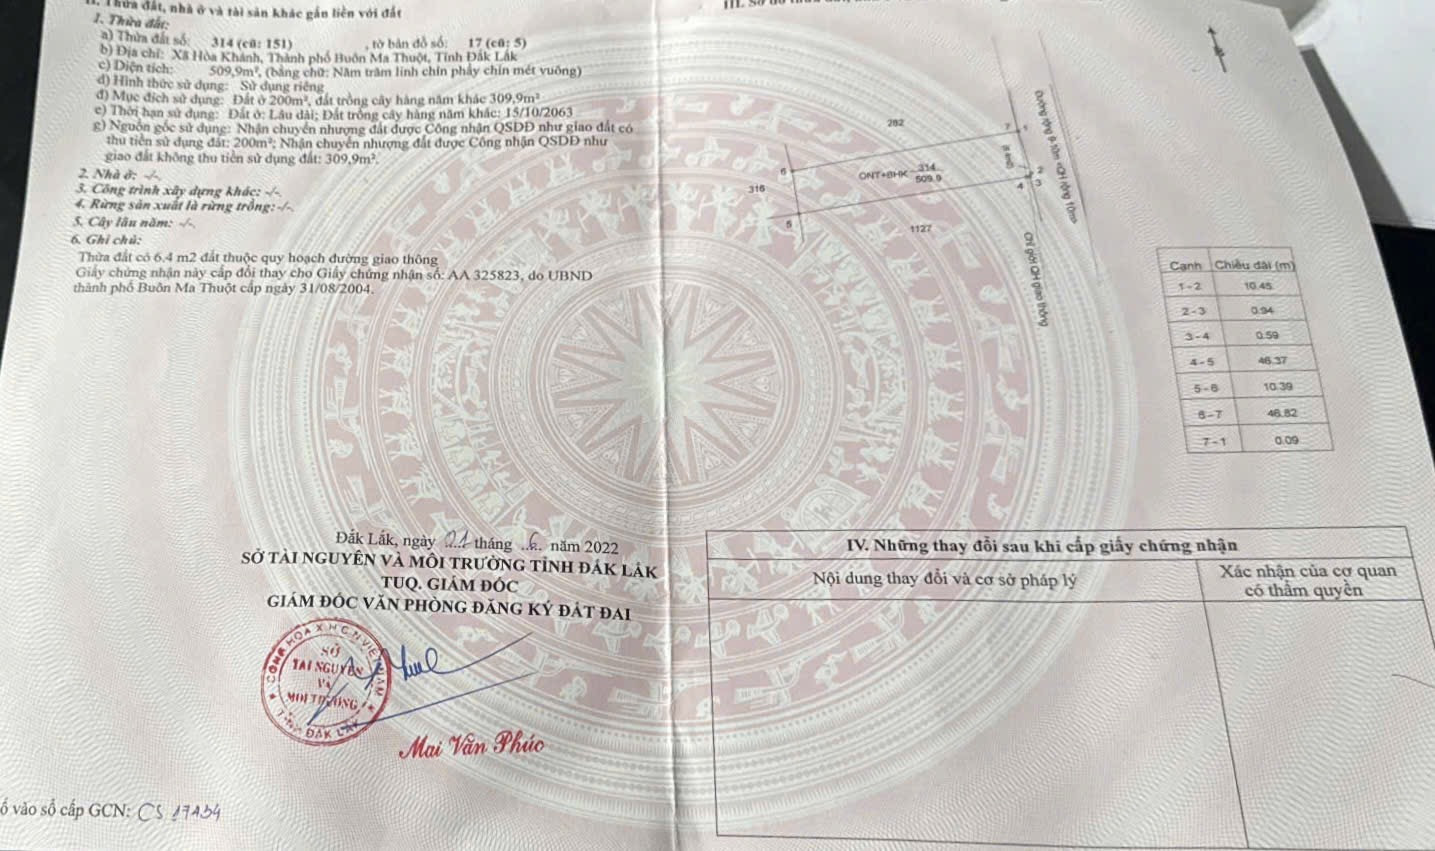 II. Thửa đất, nhà ở và tài sản khác gắn liền với đất
1. Thửa đất:
a) Thửa đất số: 314 (cũ: 151) , tờ bản đồ số: 17 (cũ: 5)
b) Địa chỉ: Xã Hòa Khánh, Thành phố Buôn Ma Thuột, Tỉnh Đắk Lắk
c) Diện tích: 509,9m², (bằng chữ: Năm trăm linh chín phẩy chín mét vuông)
d) Hình thức sử dụng: Sử dụng riêng
đ) Mục đích sử dụng: Đất ở 200m², đất trồng cây hàng năm khác 309,9m²
e) Thời hạn sử dụng: Đất ở: Lâu dài; Đất trồng cây hàng năm khác: 15/10/2063
g) Nguồn gốc sử dụng: Nhận chuyển nhượng đất được Công nhận QSDĐ như giao đất có
thu tiền sử dụng đất: 200m²; Nhận chuyển nhượng đất được Công nhận QSDĐ như
giao đất không thu tiền sử dụng đất: 309,9m².
2. Nhà ở: -/-.
3. Công trình xây dựng khác: -/-.
4. Rừng sản xuất là rừng trồng: -/-.
5. Cây lâu năm: -/-.
6. Ghi chú:
Thửa đất có 6,4 m2 đất thuộc quy hoạch đường giao thông
Giấy chứng nhận này cấp đổi thay cho Giấy chứng nhận số: AA 325823, do UBND
thành phố Buôn Ma Thuột cấp ngày 31/08/2004.
Đắk Lắk, ngày 21 tháng 6 năm 2022
SỞ TÀI NGUYÊN VÀ MÔI TRƯỜNG TỈNH ĐẮK LẮK
TUQ. GIÁM ĐỐC
GIÁM ĐỐC VĂN PHÒNG ĐĂNG KÝ ĐẤT ĐAI
CỘNG HÒA X.H.C.N VIỆT NAM
SỞ
TÀI NGUYÊN
VÀ
MÔI TRƯỜNG
TỈNH ĐẮK LẮK
Mai Văn Phúc
ố vào sổ cấp GCN: CS 17454
282
7
1
6
316
ONT+BHK 314
509.9
2
4
3
5
1127
Chỉ giới QH giao thông
Cạnh Chiều dài (m)
1-2 10.45
2-3 0.94
3-4 0.59
4-5 46.37
5-6 10.39
6-7 46.82
7-1 0.09
IV. Những thay đổi sau khi cấp giấy chứng nhận
Nội dung thay đổi và cơ sở pháp lý
Xác nhận của cơ quan
có thẩm quyền